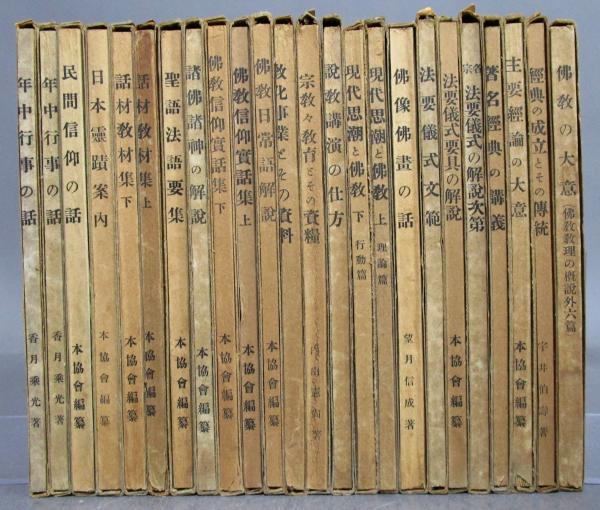 佛教の大意(佛教教理の概說外六篇)
經典の成立とその傳統 宇井伯壽著
主要經論の大意 本協會編纂
著名經典の講義
各宗 法要儀式の解說次第
法要儀式要具の解說 本協會編纂
法要儀式文範
佛像佛畫の話 望月信成著
現代思潮と佛教 上 理論篇
現代思潮と佛教 下 行動篇
說教講演の仕方
宗教々教育とその資糧
教化事業とその資料
佛教日常語解說 本協會編纂
佛教信仰實話集 上 本協會編纂
佛教信仰實話集 下 本協會編纂
諸佛諸神の解說 本協會編纂
聖語法語要集 本協會編纂
話材教材集 上 本協會編纂
話材教材集 下 本協會編纂
日本靈蹟案內 本協會編纂
民間信仰の話 本協會編纂
年中行事の話 香月乘光著
年中行事の話 香月乘光著